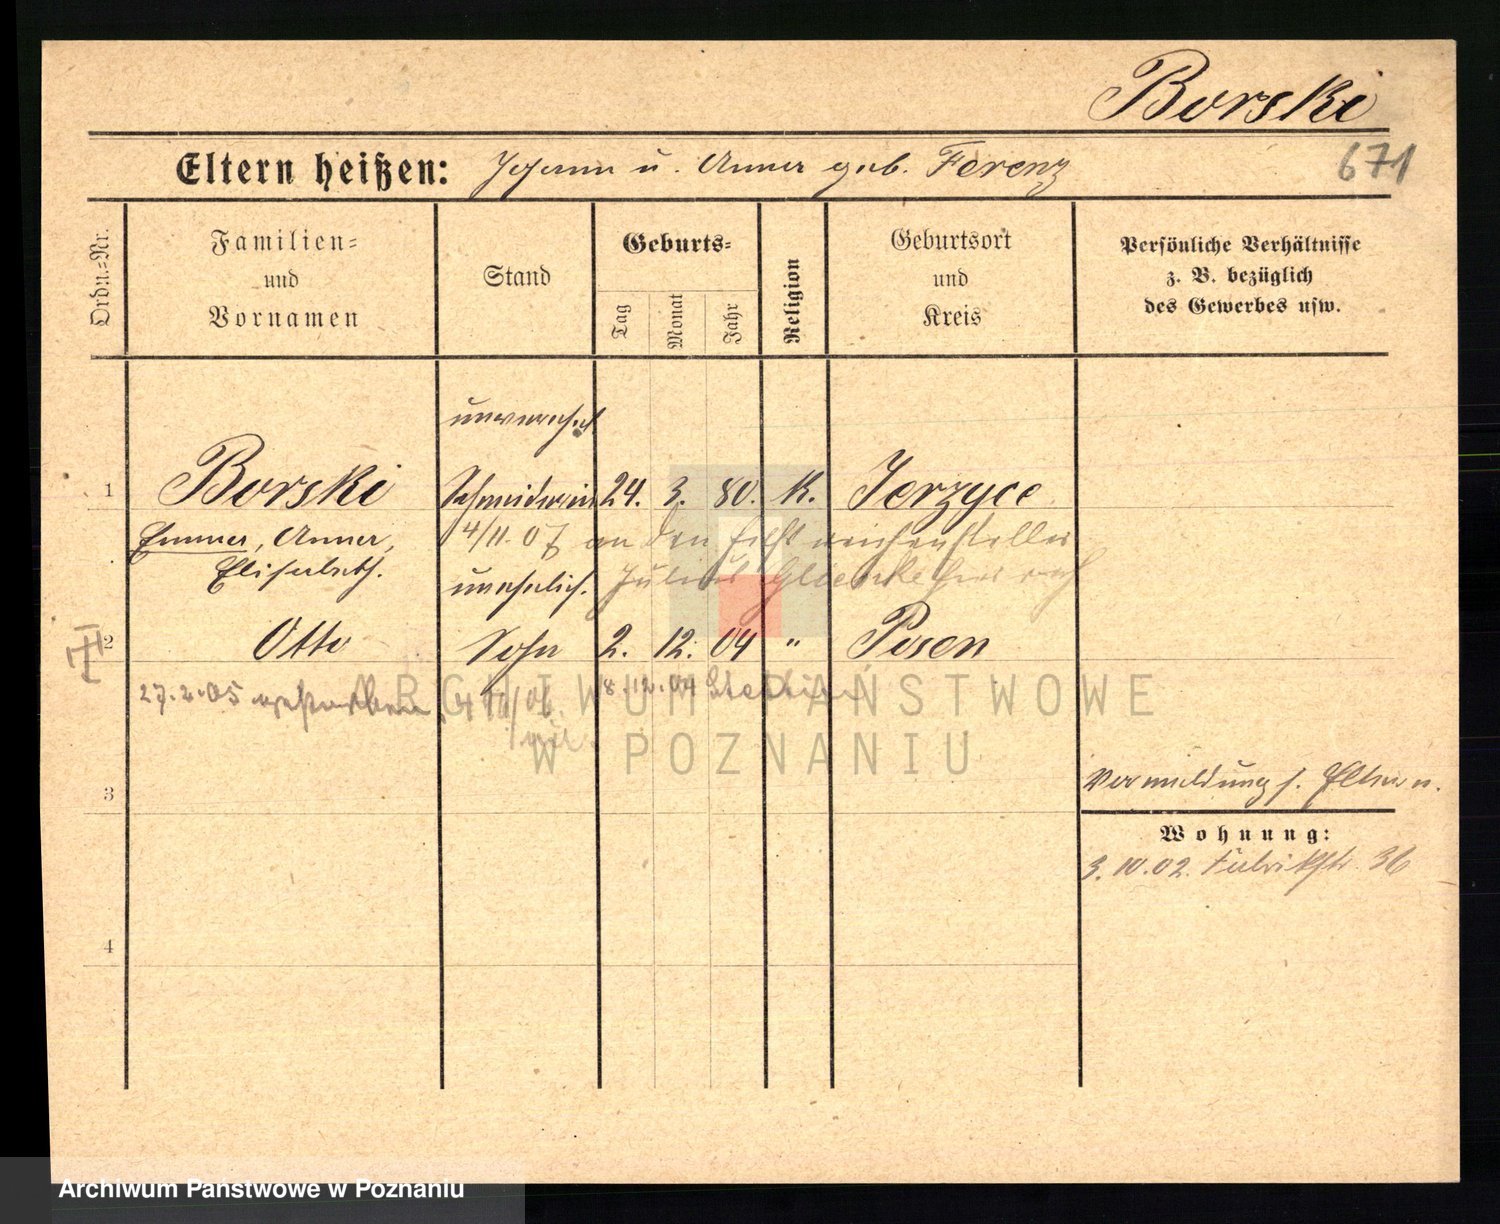 Borski
Eltern heißen: Johann u. Anna geb. Ferenz
671
Ordn.-Nr.
Familien-
und
Vornamen
Stand
Geburts-
Tag
Monat
Jahr
Religion
Geburtsort
und
Kreis
Persönliche Verhältnisse
z. B. bezüglich
des Gewerbes usw.
unverehel.
1 Borski Schneiderin 24. 3. 80. K. Jerzyce
Emma, Anna, 4/11.07 an den
Elisabeth. unehelich. Julius
II
2 Otto Sohn 2. 12. 04 " Posen
27.2.05 gestorben 8.12.04
ARCHIWUM PAŃSTWOWE
W POZNANIU
Vermeldung s. Eltern.
3
Wohnung:
3.10.02. Fabrikstr. 36
4
Archiwum Państwowe w Poznaniu